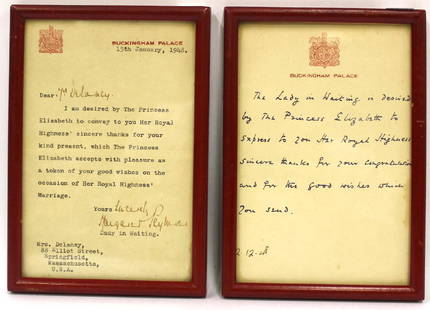 BUCKINGHAM PALACE
15th January, 1948.
Dear Mrs Delaney.
I am desired by The Princess
Elizabeth to convey to you Her Royal
Highness' sincere thanks for your
kind present, which The Princess
Elizabeth accepts with pleasure as
a token of your good wishes on the
occasion of Her Royal Highness'
Marriage.
Yours sincerely
Margaret
Lady in Waiting.
Mrs. Delaney,
88 Elliot Street,
Springfield,
Massachusetts,
U.S.A.
BUCKINGHAM PALACE
The Lady in Waiting is desired
by The Princess Elizabeth to
express to you Her Royal Highness
sincere thanks for your congratulations
and for the good wishes which
you send.
2.12.48